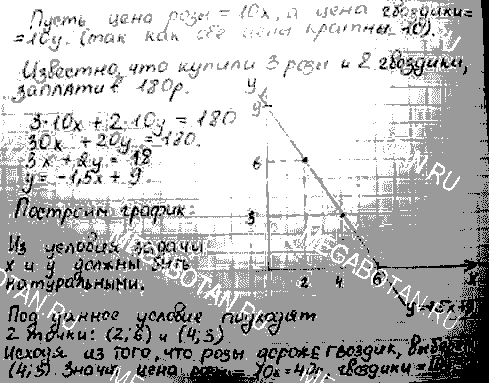 Пусть цена розы = 10x, а цена гвоздики =
= 10y. (так как обе цены кратны 10).
Известно, что купили 3 розы и 2 гвоздики,
заплатив 180р.
3·10x + 2·10y = 180
30x + 20y = 180.
3x + 2y = 18
y = -1,5x + 9.
Построим график:
Из условия задачи
x и y должны быть
натуральными.
Под данное условие подходят
2 точки: (2;6) и (4;3)
Исходя из того, что розы дороже гвоздик,
(4;3). Значит, цена розы = 10x = 40р, гвоздики =
y
9
6
3
2 4 6
x
MEGABOTAN.RU
MEGABOTAN.RU
MEGABOTAN.RU
MEGABOTAN.RU
MEGABOTAN.RU